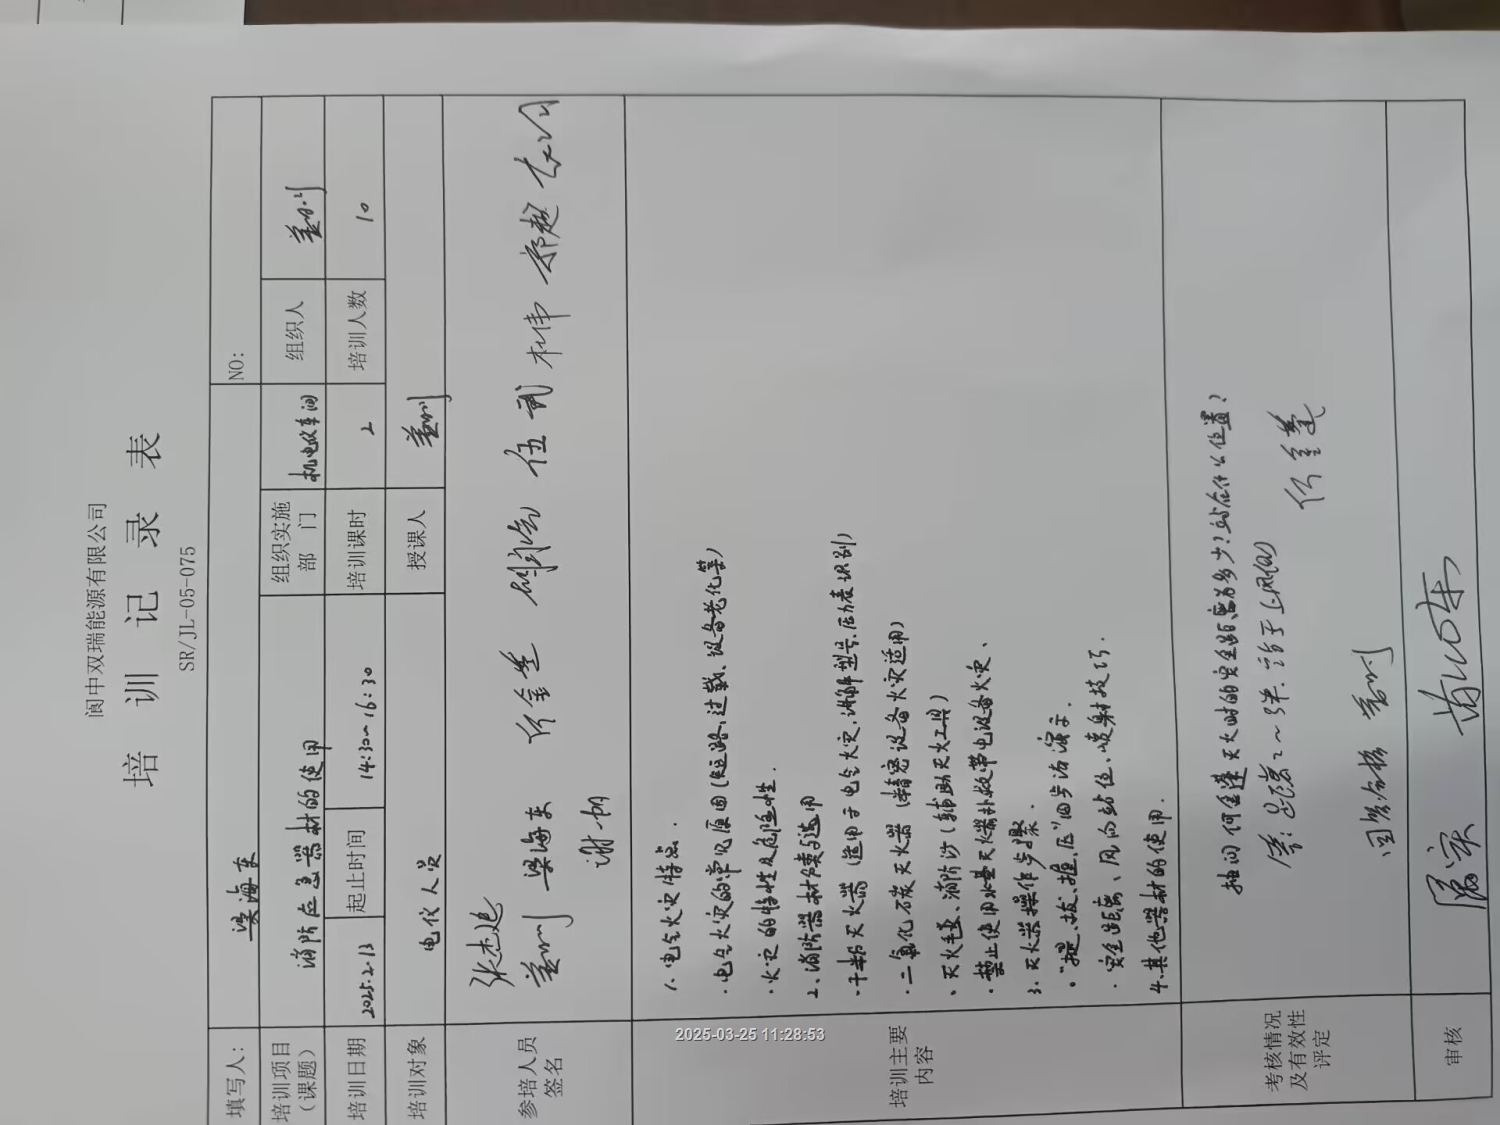 阆中双瑞能源有限公司
培 训 记 录 表
SR/JL-05-075
填写人： 梁海东 NO:
培训项目（课题） 消防应急器材的使用 组织实施部门 机电仪车间 组织人
培训日期 2025.2.13 起止时间 14:30~16:30 培训课时 2 培训人数 10
培训对象 电仪人员 授课人
参培人员签名 张杰追 梁海东 何全莲 伍武 杜伟 郑越
谢一帆
培训主要内容
1. 电气火灾特点.
· 电气火灾的常见原因(短路,过载、设备老化等)
· 火灾的特性及危险性.
2、消防器材种类与选用
· 干粉灭火器 (适用于电气火灾,讲解型号.压力表识别)
· 二氧化碳灭火器 (精密设备火灾适用)
、灭火毛毯、消防沙 (辅助灭火工具)
· 禁止使用水基灭火器扑救带电设备火灾、
3. 灭火器操作步骤.
· "提、拔、握、压"四步法演示.
· 安全距离、风向站位、喷射技巧.
4.其他器材的使用.
考核情况及有效性评定
抽问何全莲灭火时的安全距离为多少?站在什么位置?
答: 距离2~3米. 站于上风向 何全莲
回答合格
审核
2025-03-25 11:28:53